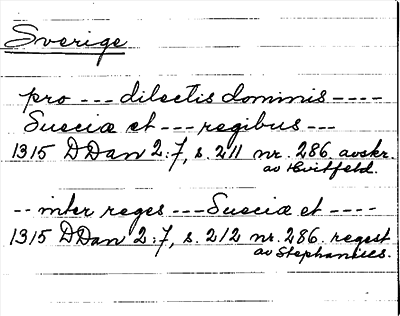 Sverige
pro --- dilectis dominis ----
Sueciæ et --- regibus ---
1315 DDan 2:7, s. 211 nr. 286 avskr.
av Hvitfeld.
-- inter reges --- Sueciæ et ----
1315 DDan 2:7, s. 212 nr. 286 regest
av Stephanius.